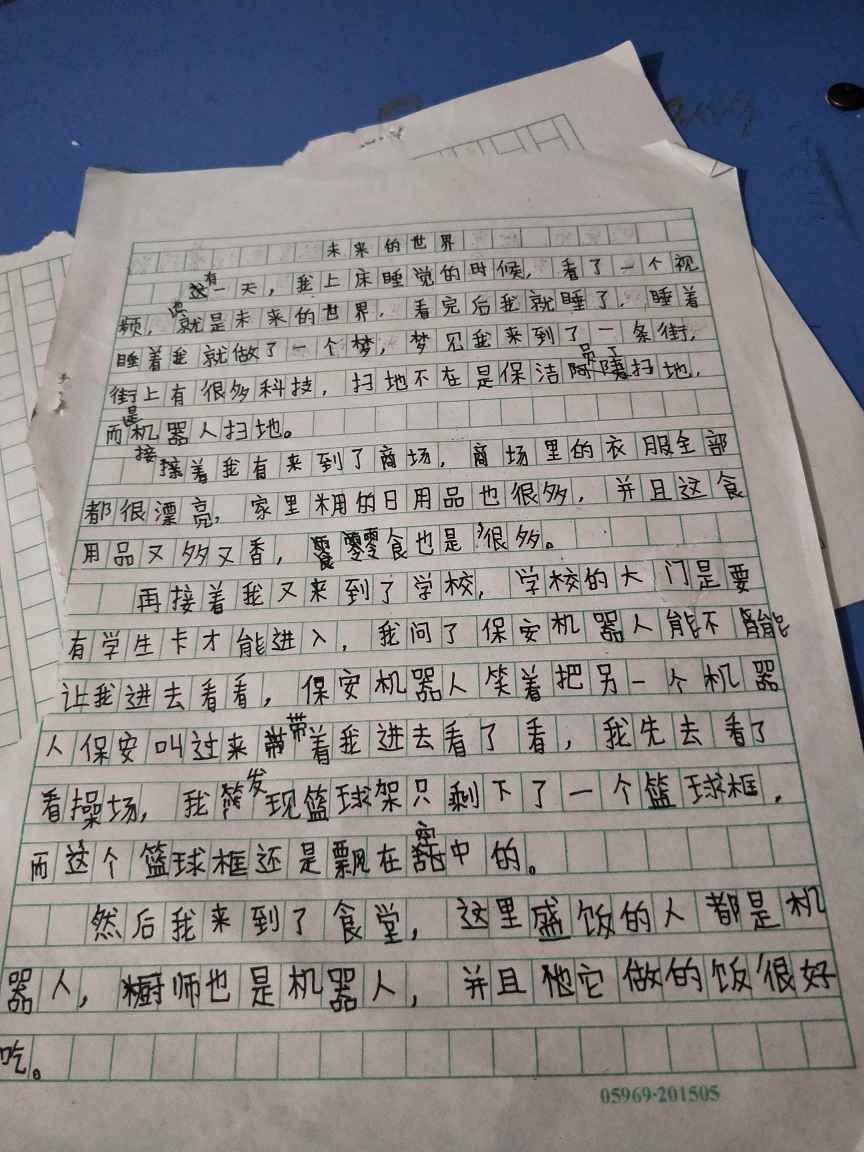 未来的世界
有一天，我上床睡觉的时候，看了一个视
频，就是未来的世界，看完后我就睡了，睡着
睡着我就做了一个梦，梦见我来到了一条街，
街上有很多科技，扫地不在是保洁员工扫地，
而是机器人扫地。
接着我有来到了商场，商场里的衣服全部
都很漂亮，家里用的日用品也很多，并且这食
用品又多又香，零食也是很多。
再接着我又来到了学校，学校的大门是要
有学生卡才能进入，我问了保安机器人能不能
让我进去看看，保安机器人笑着把另一个机器
人保安叫过来带着我进去看了看，我先去看了
看操场，我发现篮球架只剩下了一个篮球框，
而这个篮球框还是飘在空中的。
然后我来到了食堂，这里盛饭的人都是机
器人，厨师也是机器人，并且它做的饭很好
吃。
05969·201505